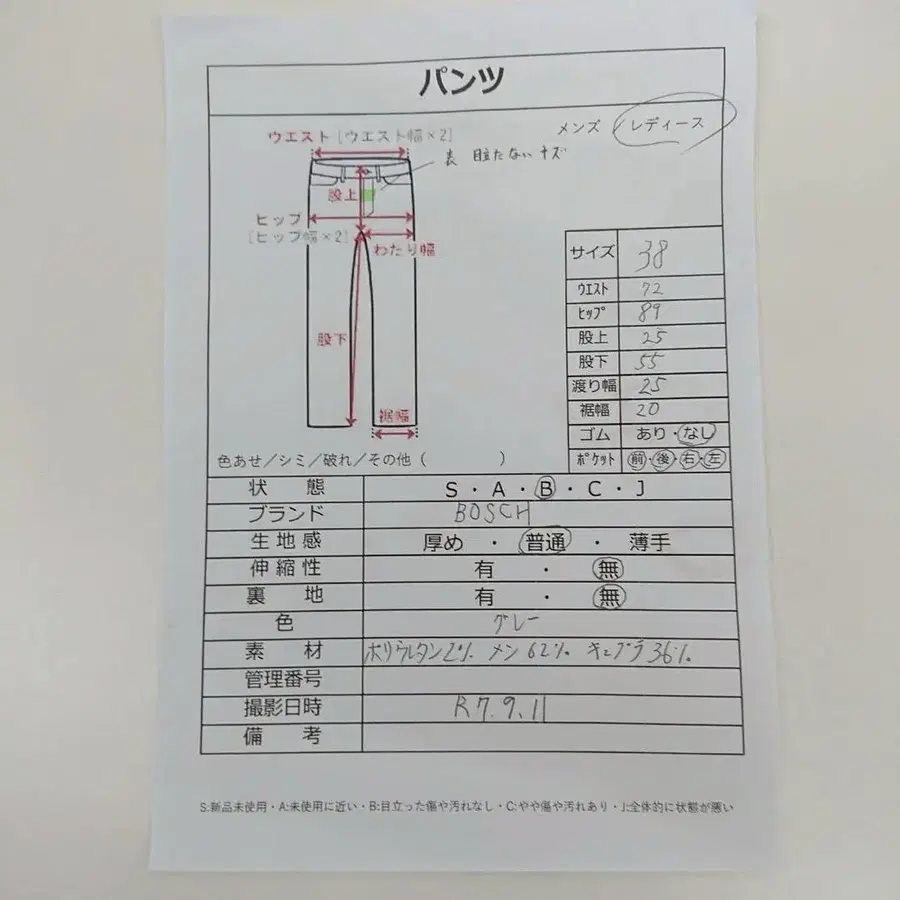 パンツ
メンズ / レディース
ウエスト [ウエスト幅×2]
表 目立たないキズ
股上
ヒップ
[ヒップ幅×2]
わたり幅
股下
裾幅
サイズ 38
ウエスト 72
ヒップ 89
股上 25
股下 55
渡り幅 25
裾幅 20
ゴム あり・なし
ポケット 前・後・右・左
色あせ/シミ/破れ/その他 ( )
状態 S・A・B・C・J
ブランド BOSCH
生地感 厚め ・ 普通 ・ 薄手
伸縮性 有 ・ 無
裏地 有 ・ 無
色 グレー
素材 ポリウレタン2% メン62% キュプラ36%
管理番号
撮影日時 R7.9.11
備考
S:新品未使用・A:未使用に近い・B:目立った傷や汚れなし・C:やや傷や汚れあり・J:全体的に状態が悪い